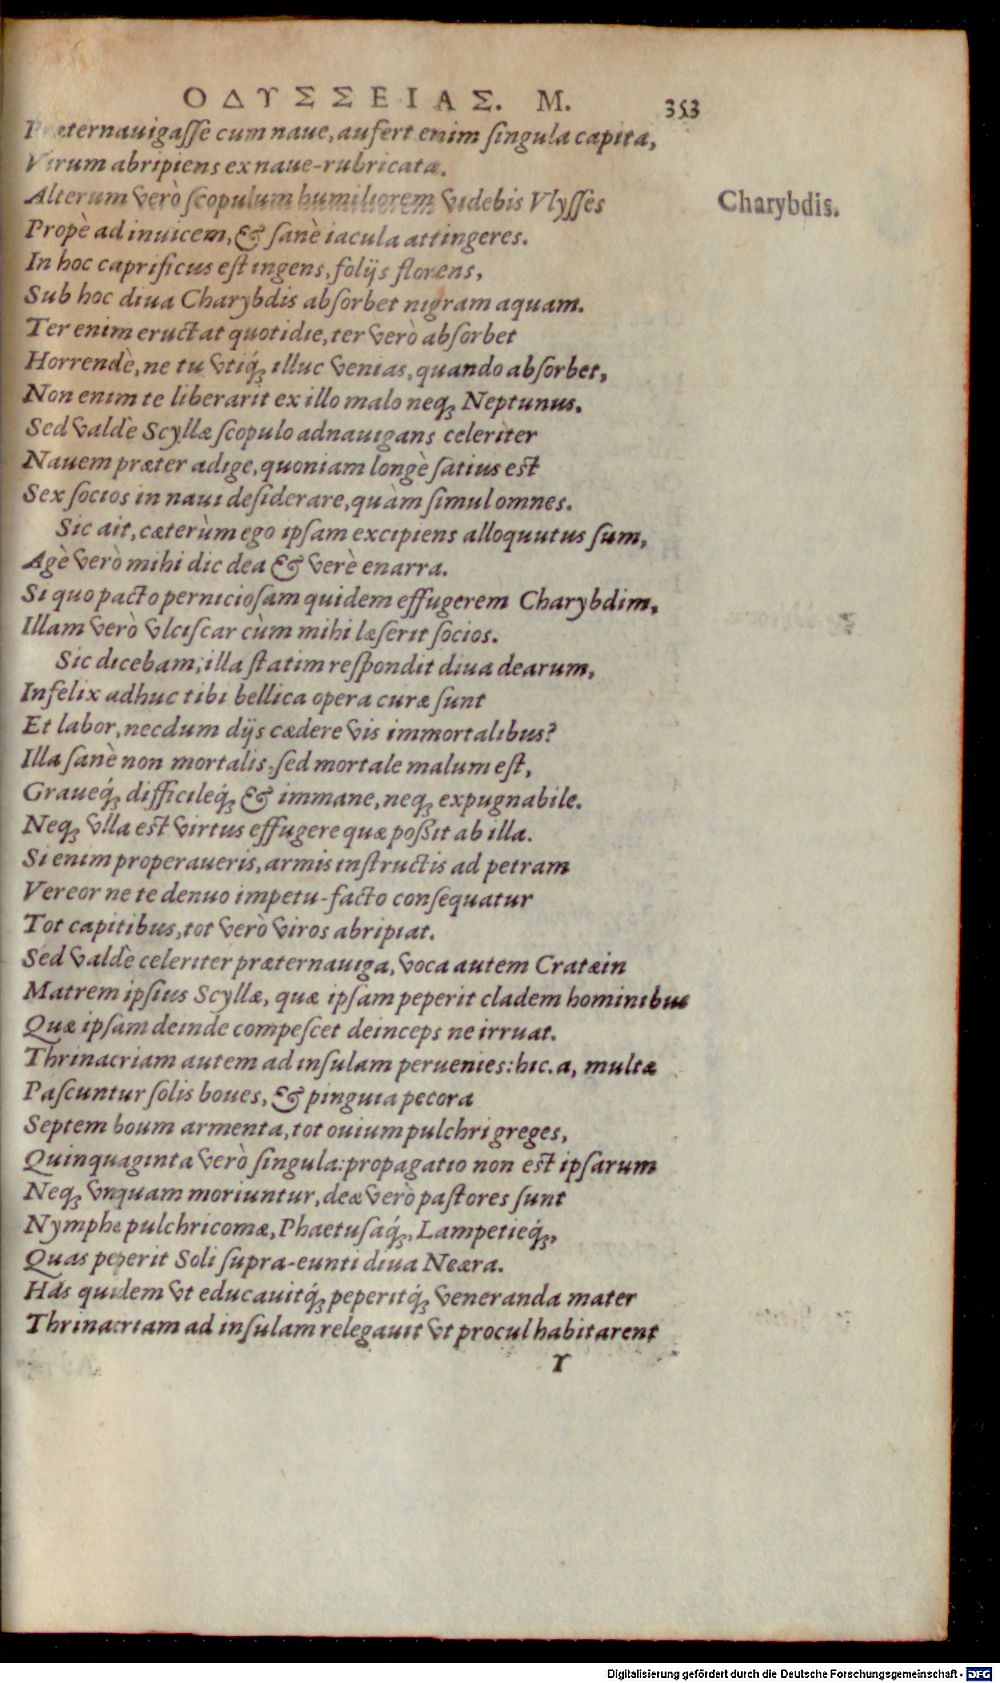 ΟΔΥΣΣΕΙΑΣ. M. 353
Præternauigasse cum naue, aufert enim singula capita,
Virum abripiens ex naue-rubricata.
Alterum verò scopulum humiliorem videbis Vlysses
Charybdis.
Propè ad inuicem, & sanè iacula attingeres.
In hoc caprificus est ingens, folijs florens,
Sub hoc diua Charybdis absorbet nigram aquam.
Ter enim eructat quotidie, ter verò absorbet
Horrendè, ne tu vtiq́; illuc venias, quando absorbet,
Non enim te liberarit ex illo malo neq; Neptunus.
Sed valdè Scyllæ scopulo adnauigans celeriter
Nauem præter adige, quoniam longè satius est
Sex socios in naui desiderare, quàm simul omnes.
Sic ait, cæterùm ego ipsam excipiens alloquutus sum,
Agè verò mihi dic dea & verè enarra.
Si quo pacto perniciosam quidem effugerem Charybdim,
Illam verò vlciscar cùm mihi læserit socios.
Sic dicebam, illa statim respondit diua dearum,
Infelix adhuc tibi bellica opera curæ sunt
Et labor, necdum dijs cædere vis immortalibus?
Illa sanè non mortalis, sed mortale malum est,
Graueq́; difficileq́; & immane, neq; expugnabile.
Neq; vlla est virtus effugere quæ possit ab illa.
Si enim properaueris, armis instructis ad petram
Vereor ne te denuo impetu-facto consequatur
Tot capitibus, tot verò viros abripiat.
Sed valdè celeriter præternauiga, voca autem Cratæin
Matrem ipsius Scyllæ, quæ ipsam peperit cladem hominibus
Quæ ipsam deinde compescet deinceps ne irruat.
Thrinacriam autem ad insulam peruenies: hic. a, multæ
Pascuntur solis boues, & pinguia pecora
Septem boum armenta, tot ouium pulchri greges,
Quinquaginta verò singula: propagatio non est ipsarum
Neq; vnquam moriuntur, deæ verò pastores sunt
Nymphæ pulchricomæ, Phaetusaq́;, Lampetieq́;,
Quas peperit Soli supra-eunti diua Neæra.
Has quidem vt educauitq́; peperitq́; veneranda mater
Thrinacriam ad insulam relegauit vt procul habitarent
Υ
Digitalisierung gefördert durch die Deutsche Forschungsgemeinschaft - DFG